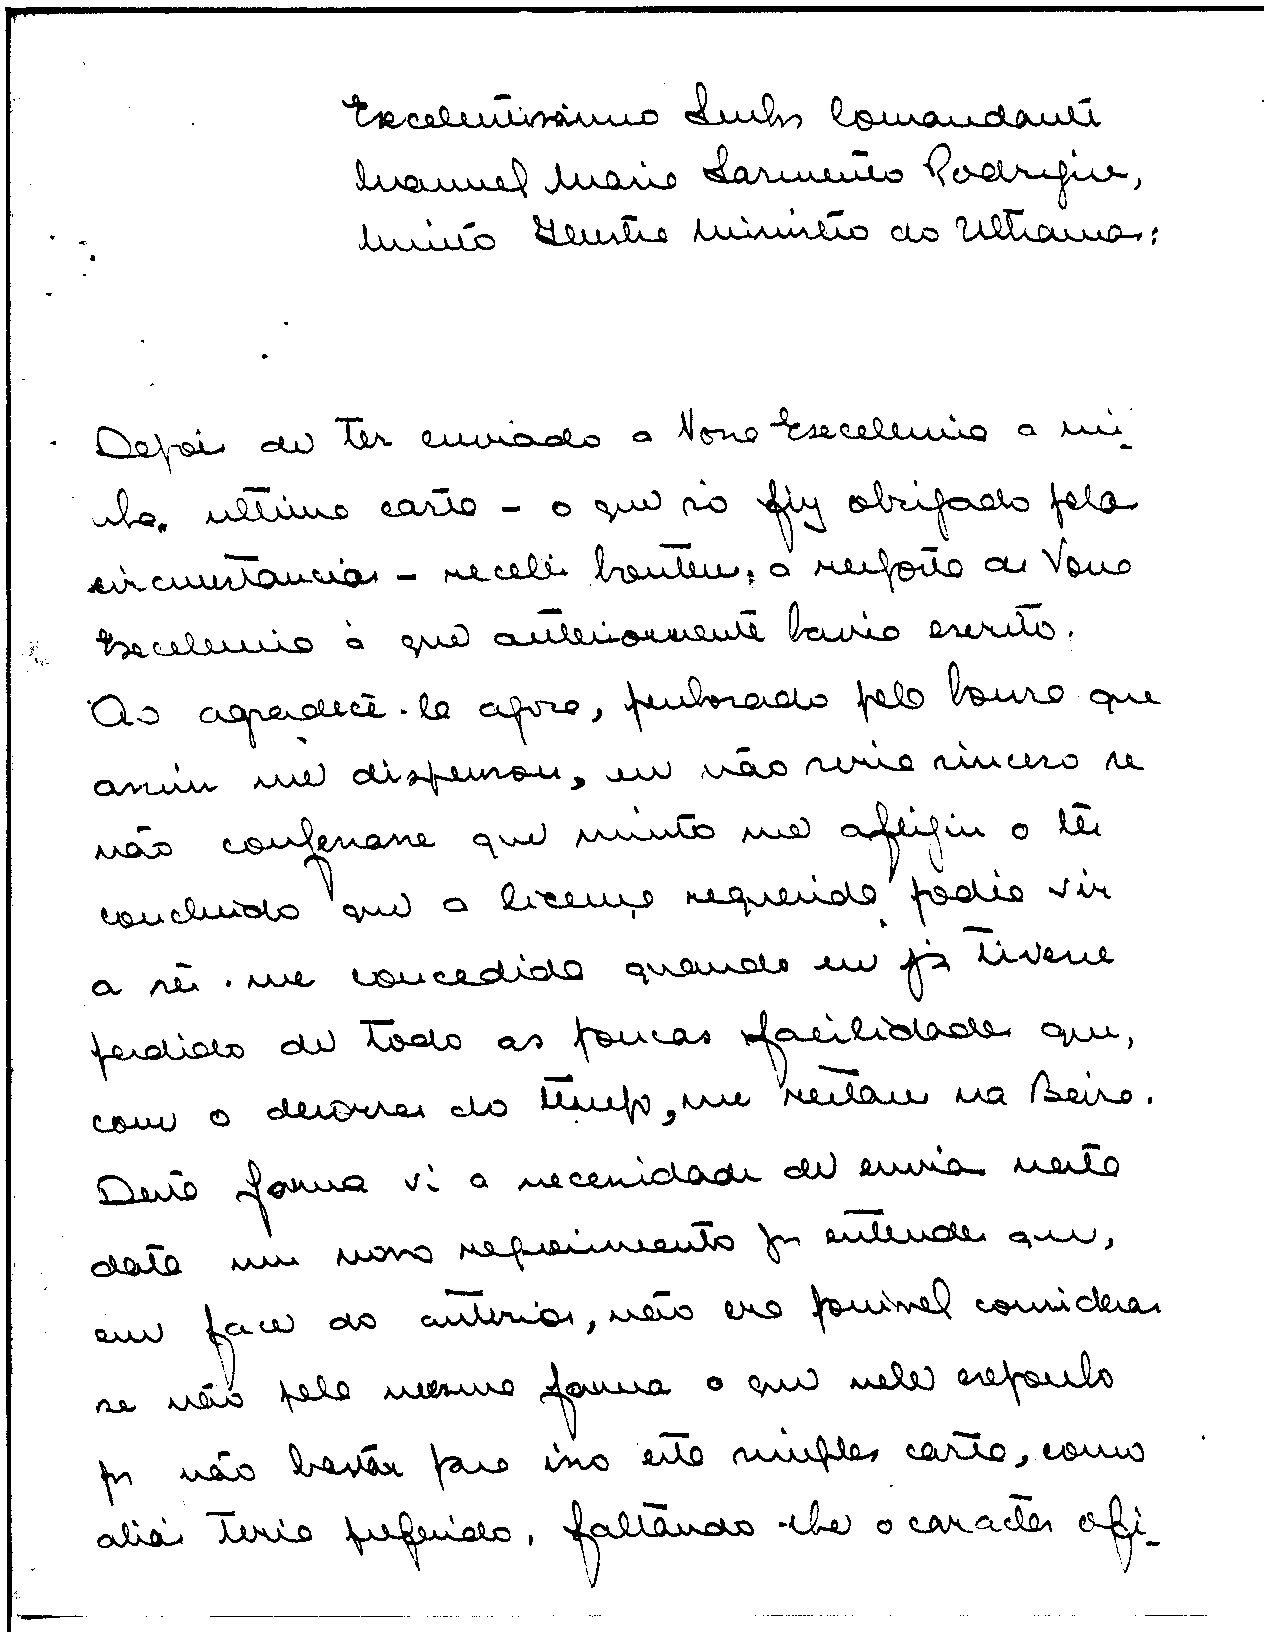 Excelentissimo Senhor Comandante
Manuel Maria Sarmento Rodrigues,
Muito Ilustre Ministro do Ultramar:
Depois de ter enviado a Vossa Excelencia a mi-
nha ultima carta - o que só fiz obrigado pelas
circunstancias - recebi hontem, a resposta de Vossa
Excelencia à que anteriormente havia escrito.
Ao agradecê-la agora, penhorado pela honra que
assim me dispensou, eu não seria sincero se
não confessasse que muito me afligiu o têr
concluido que a licença requerida podia vir
a sêr-me concedida quando eu já tivesse
perdido de todo as poucas facilidades que,
com o decorrer do tempo, me restam na Beira.
Desta forma vi a necessidade de enviar nesta
data um novo requerimento por entender que,
em face do anterior, não era possivel considerar
se não pela mesma forma o que nele exponho
por não bastar para isso esta simples carta, como
aliás teria preferido, faltando-lhe o caracter ofi-